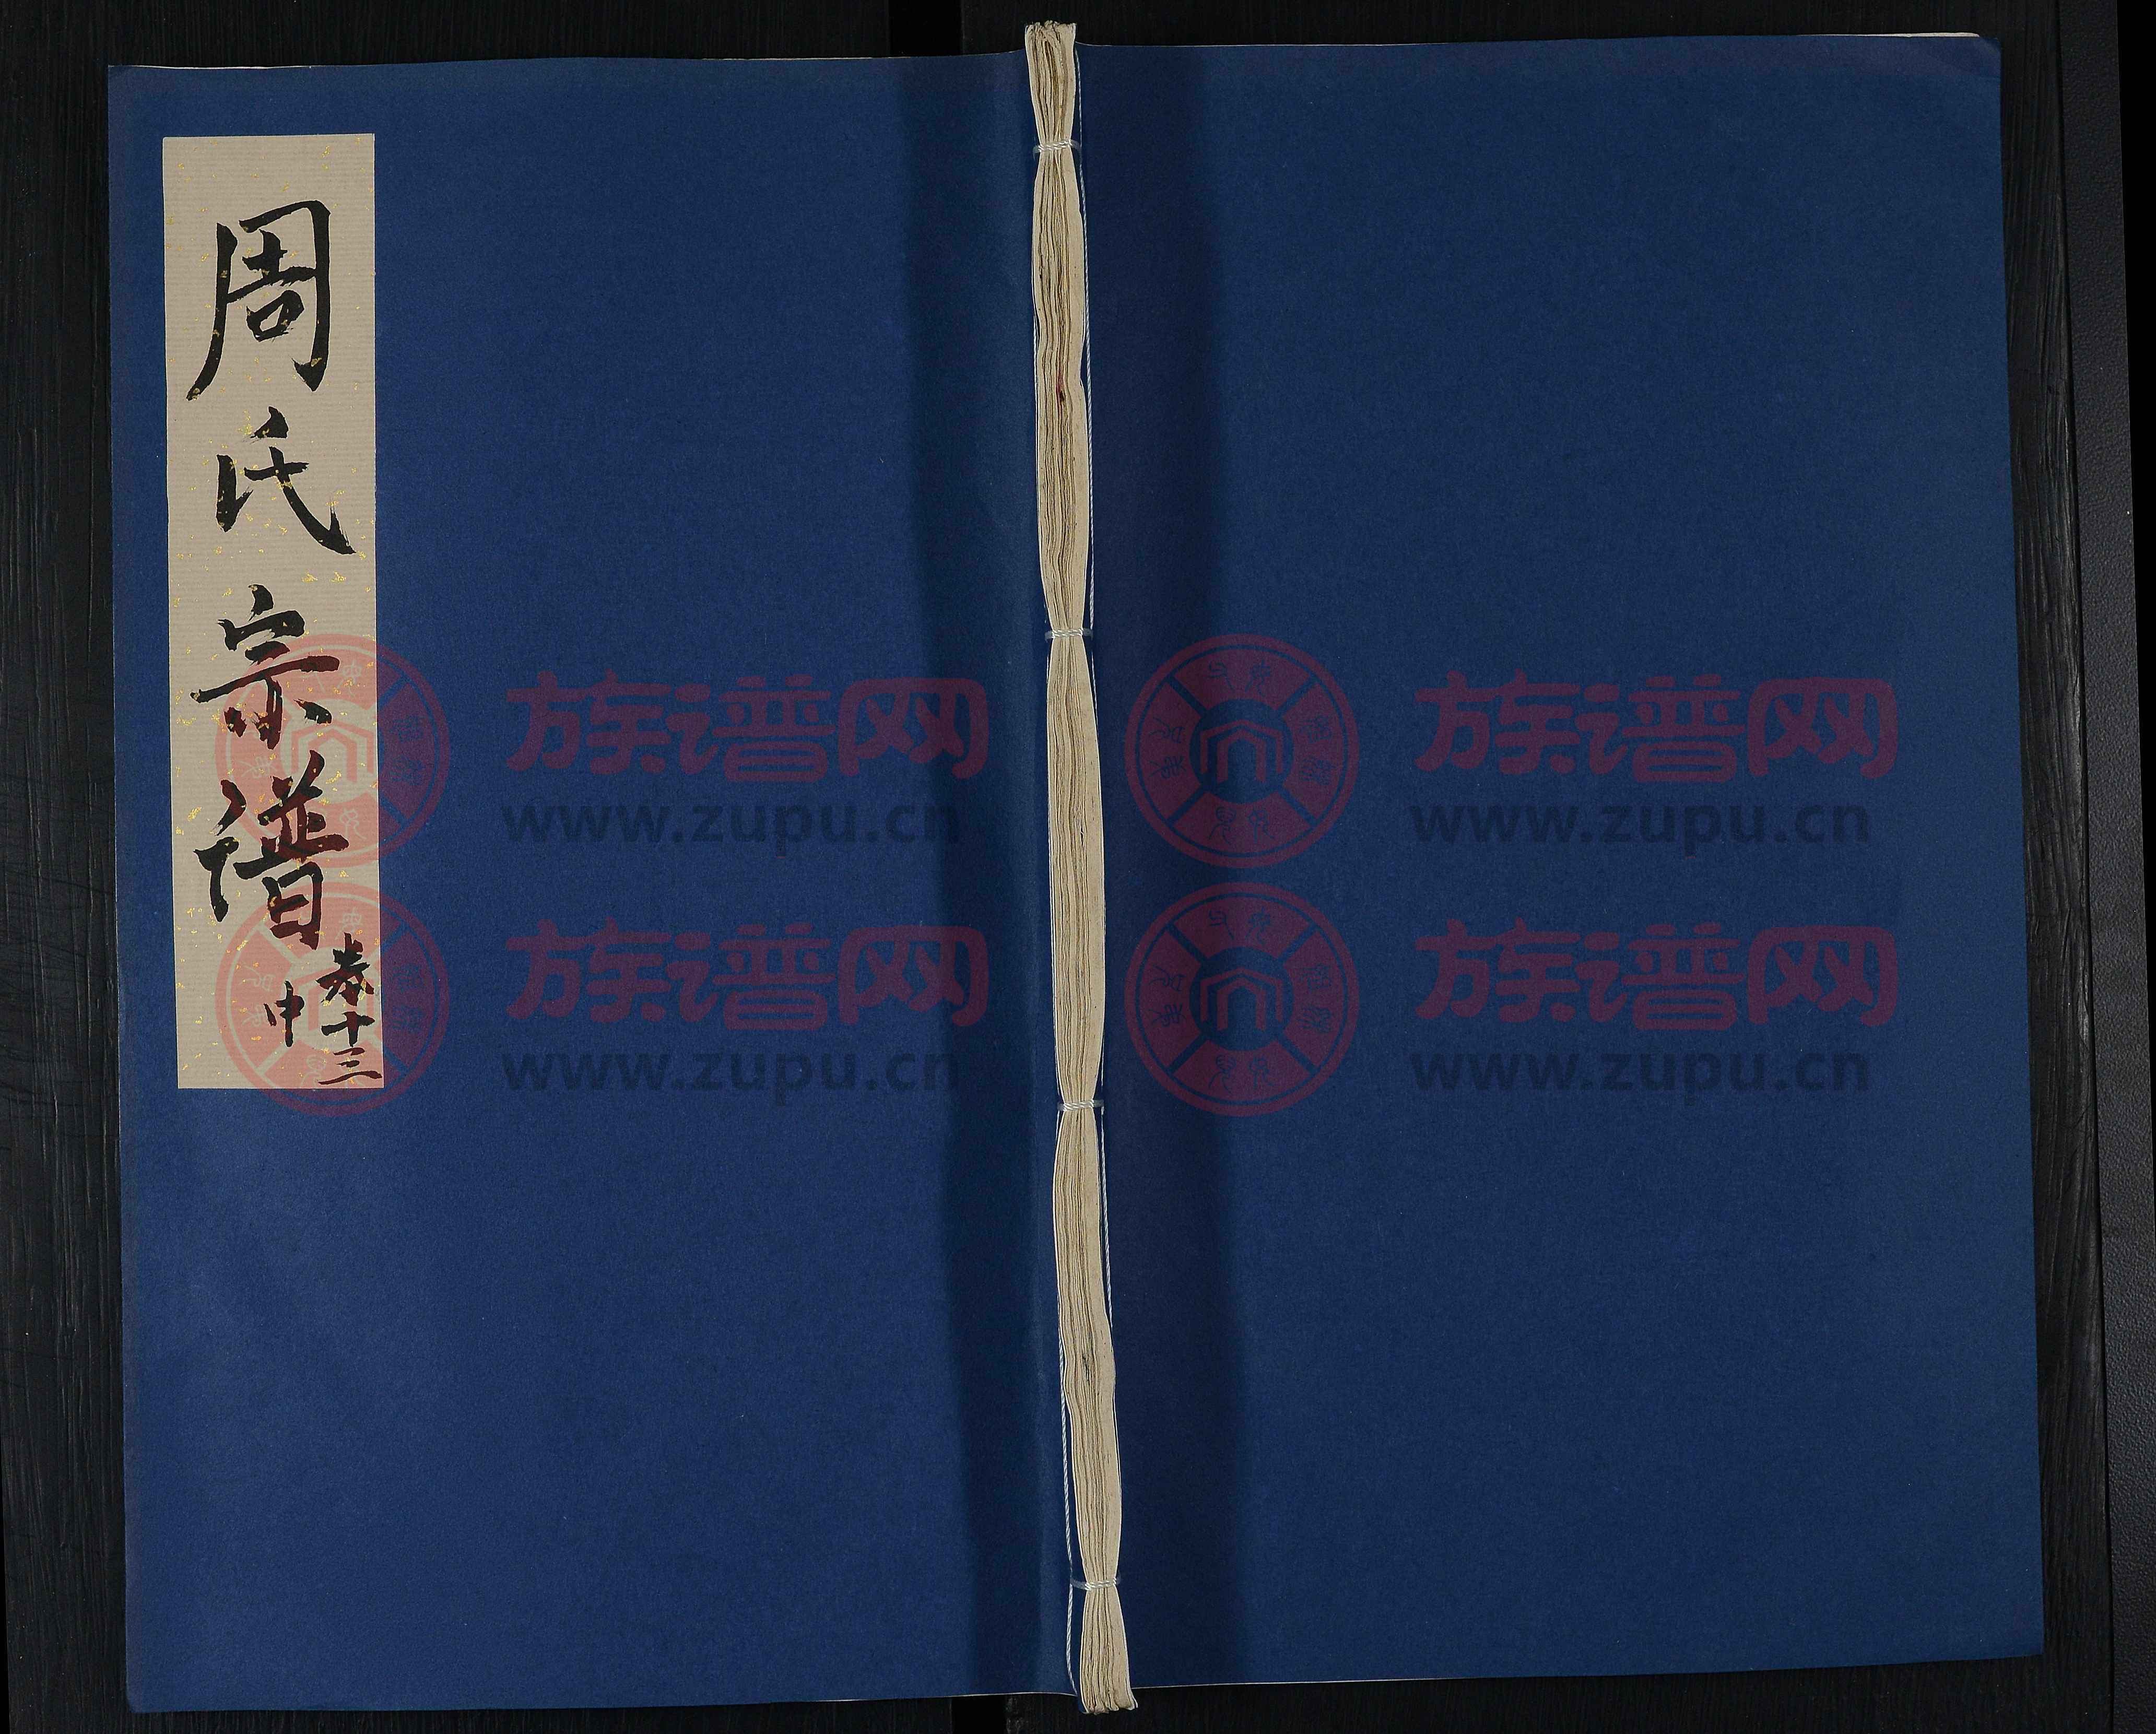 周氏宗譜
卷十三
申
族谱网
www.zupu.cn
族谱网
www.zupu.cn
族谱网
www.zupu.cn
族谱网
www.zupu.cn